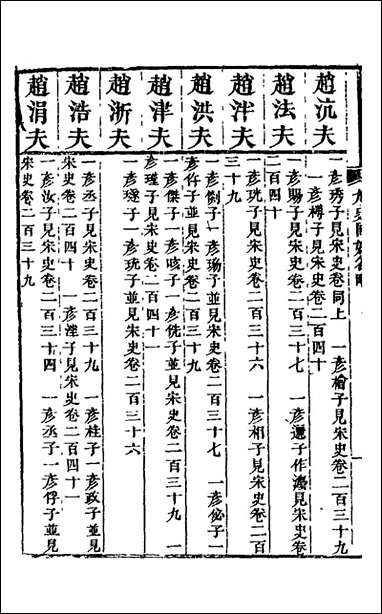 九史同姓名略
趙沆夫
一彥琇子見宋史卷同上 一彥檜子見宋史卷二百三十九
一彥樽子見宋史卷二百四十
趙法夫
一彥賜子見宋史卷二百三十七 一彥還子作瀍見宋史卷
二百四十
趙泮夫
一彥珖子見宋史卷二百三十六 一彥相子見宋史卷二百
三十九
趙洪夫
一彥倒子一彥瑒子並見宋史卷二百三十七 一彥佖子一
彥仵子並見宋史卷二百三十九
趙津夫
一彥傑子一彥咳子一彥侁子並見宋史卷二百三十九 一
彥瑾子見宋史卷二百四十一
趙浙夫
一彥璲子一彥珫子並見宋史卷二百三十六
趙浩夫
一彥丞子見宋史卷二百三十九 一彥桂子一彥政子並見
宋史卷二百四十 一彥浬子見宋史卷二百四十一
趙涓夫
一彥汝子見宋史卷二百三十四 一彥丞子一彥俘子並見
宋史卷二百三十九